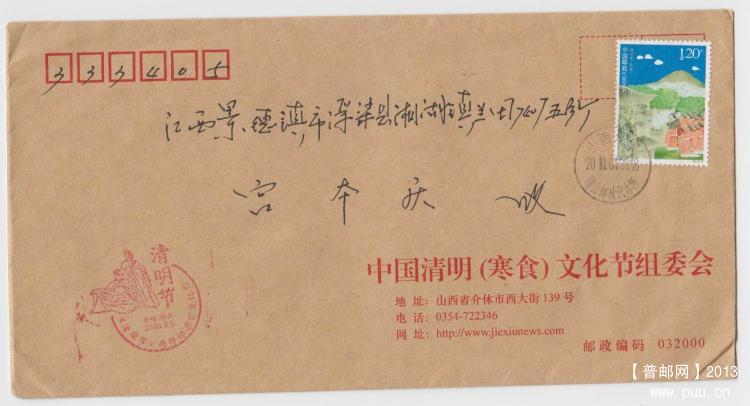 333405
1.20元
中国邮政 CHINA
江西景德镇市浮梁县湘湖镇兰田
宫本庆 收
清明节
中国清明（寒食）文化节组委会
地 址：山西省介休市西大街 139 号
电 话：0354-722346
网 址：http://www.jiexiunews.com
邮政编码 032000
【普邮网】2013
www.puu.cn